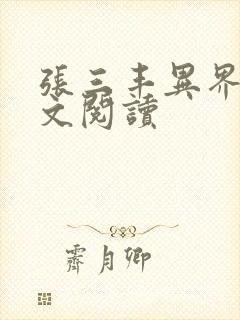 張三丰異界
文閱讀
霽月卿